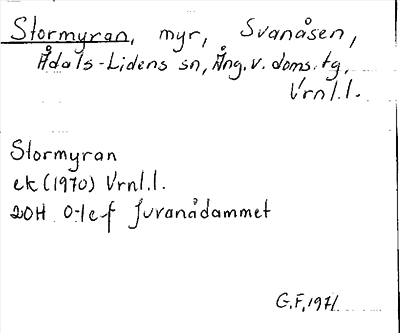 Stormyran, myr, Svanåsen,
Ådals-Lidens sn, Ång. v. doms. tg,
Vrnl.l.
Stormyran
ek (1970) Vrnl.l.
20H 0-1e-f Juranådammet
G.F. 1971